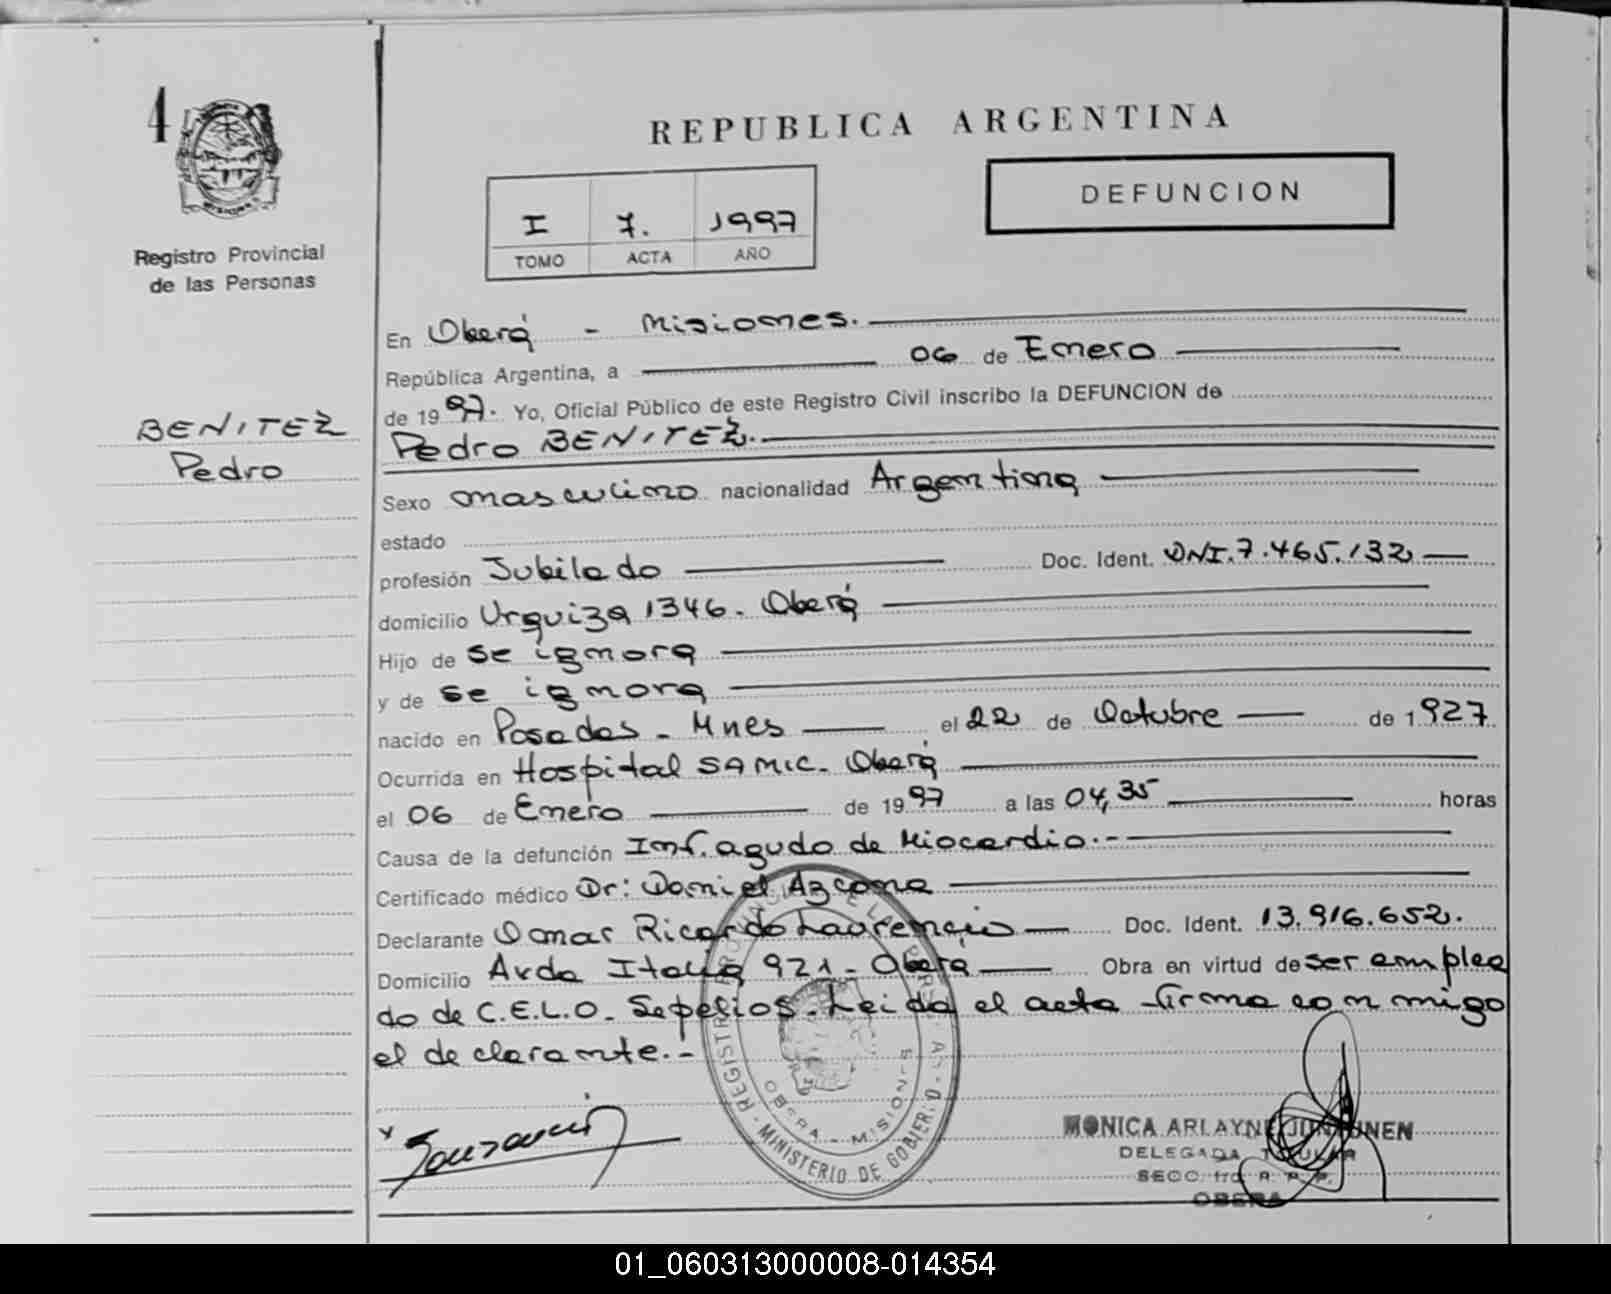 4
REPUBLICA ARGENTINA
DEFUNCION
I 7. 1997
TOMO ACTA AÑO
Registro Provincial
de las Personas
BENITEZ
Pedro
En Oberá - Misiones.
República Argentina, a 06 de Enero
de 1997. Yo, Oficial Público de este Registro Civil inscribo la DEFUNCION de
Pedro BENITEZ.
Sexo masculino nacionalidad Argentina
estado
profesión Jubilado Doc. Ident. DNI.7.465.132
domicilio Urquiza 1346. Oberá
Hijo de se ignora
y de se ignora
nacido en Posadas - Mnes el 22 de Octubre de 1.927
Ocurrida en Hospital SAMIC. Oberá
el 06 de Enero de 1997 a las 04,35 horas
Causa de la defunción Inf. agudo de Miocardio.-
Certificado médico Dr: Daniel Azcona
Declarante Omar Ricardo Laurencio Doc. Ident. 13.916.652.
Domicilio Avda Italia 921 - Oberá Obra en virtud de ser emplea
do de C.E.L.O. Sepelios. Leida el acta firma conmigo
el declarante.-
REGISTRO PROVINCIAL DE LAS PERSONAS - MINISTERIO DE GOBIERNO
OBERA - MISIONES
MONICA ARLAYNE
DELEGADA TITULAR
SECC. 1ra R. P. P.
OBERA
01_060313000008-014354